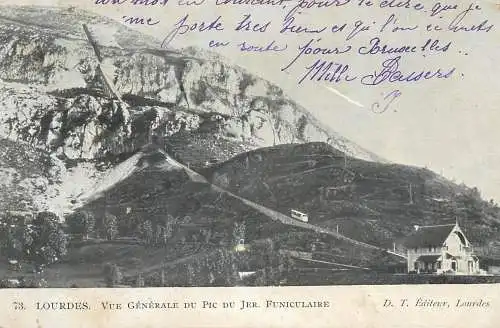 mot en courant, pour te dire, que je
me porte très bien et qu'on se met
en route pour Bruxelles
Mille Baissers
73. LOURDES. VUE GÉNÉRALE DU PIC DU JER. FUNICULAIRE
D. T. Éditeur, Lourdes